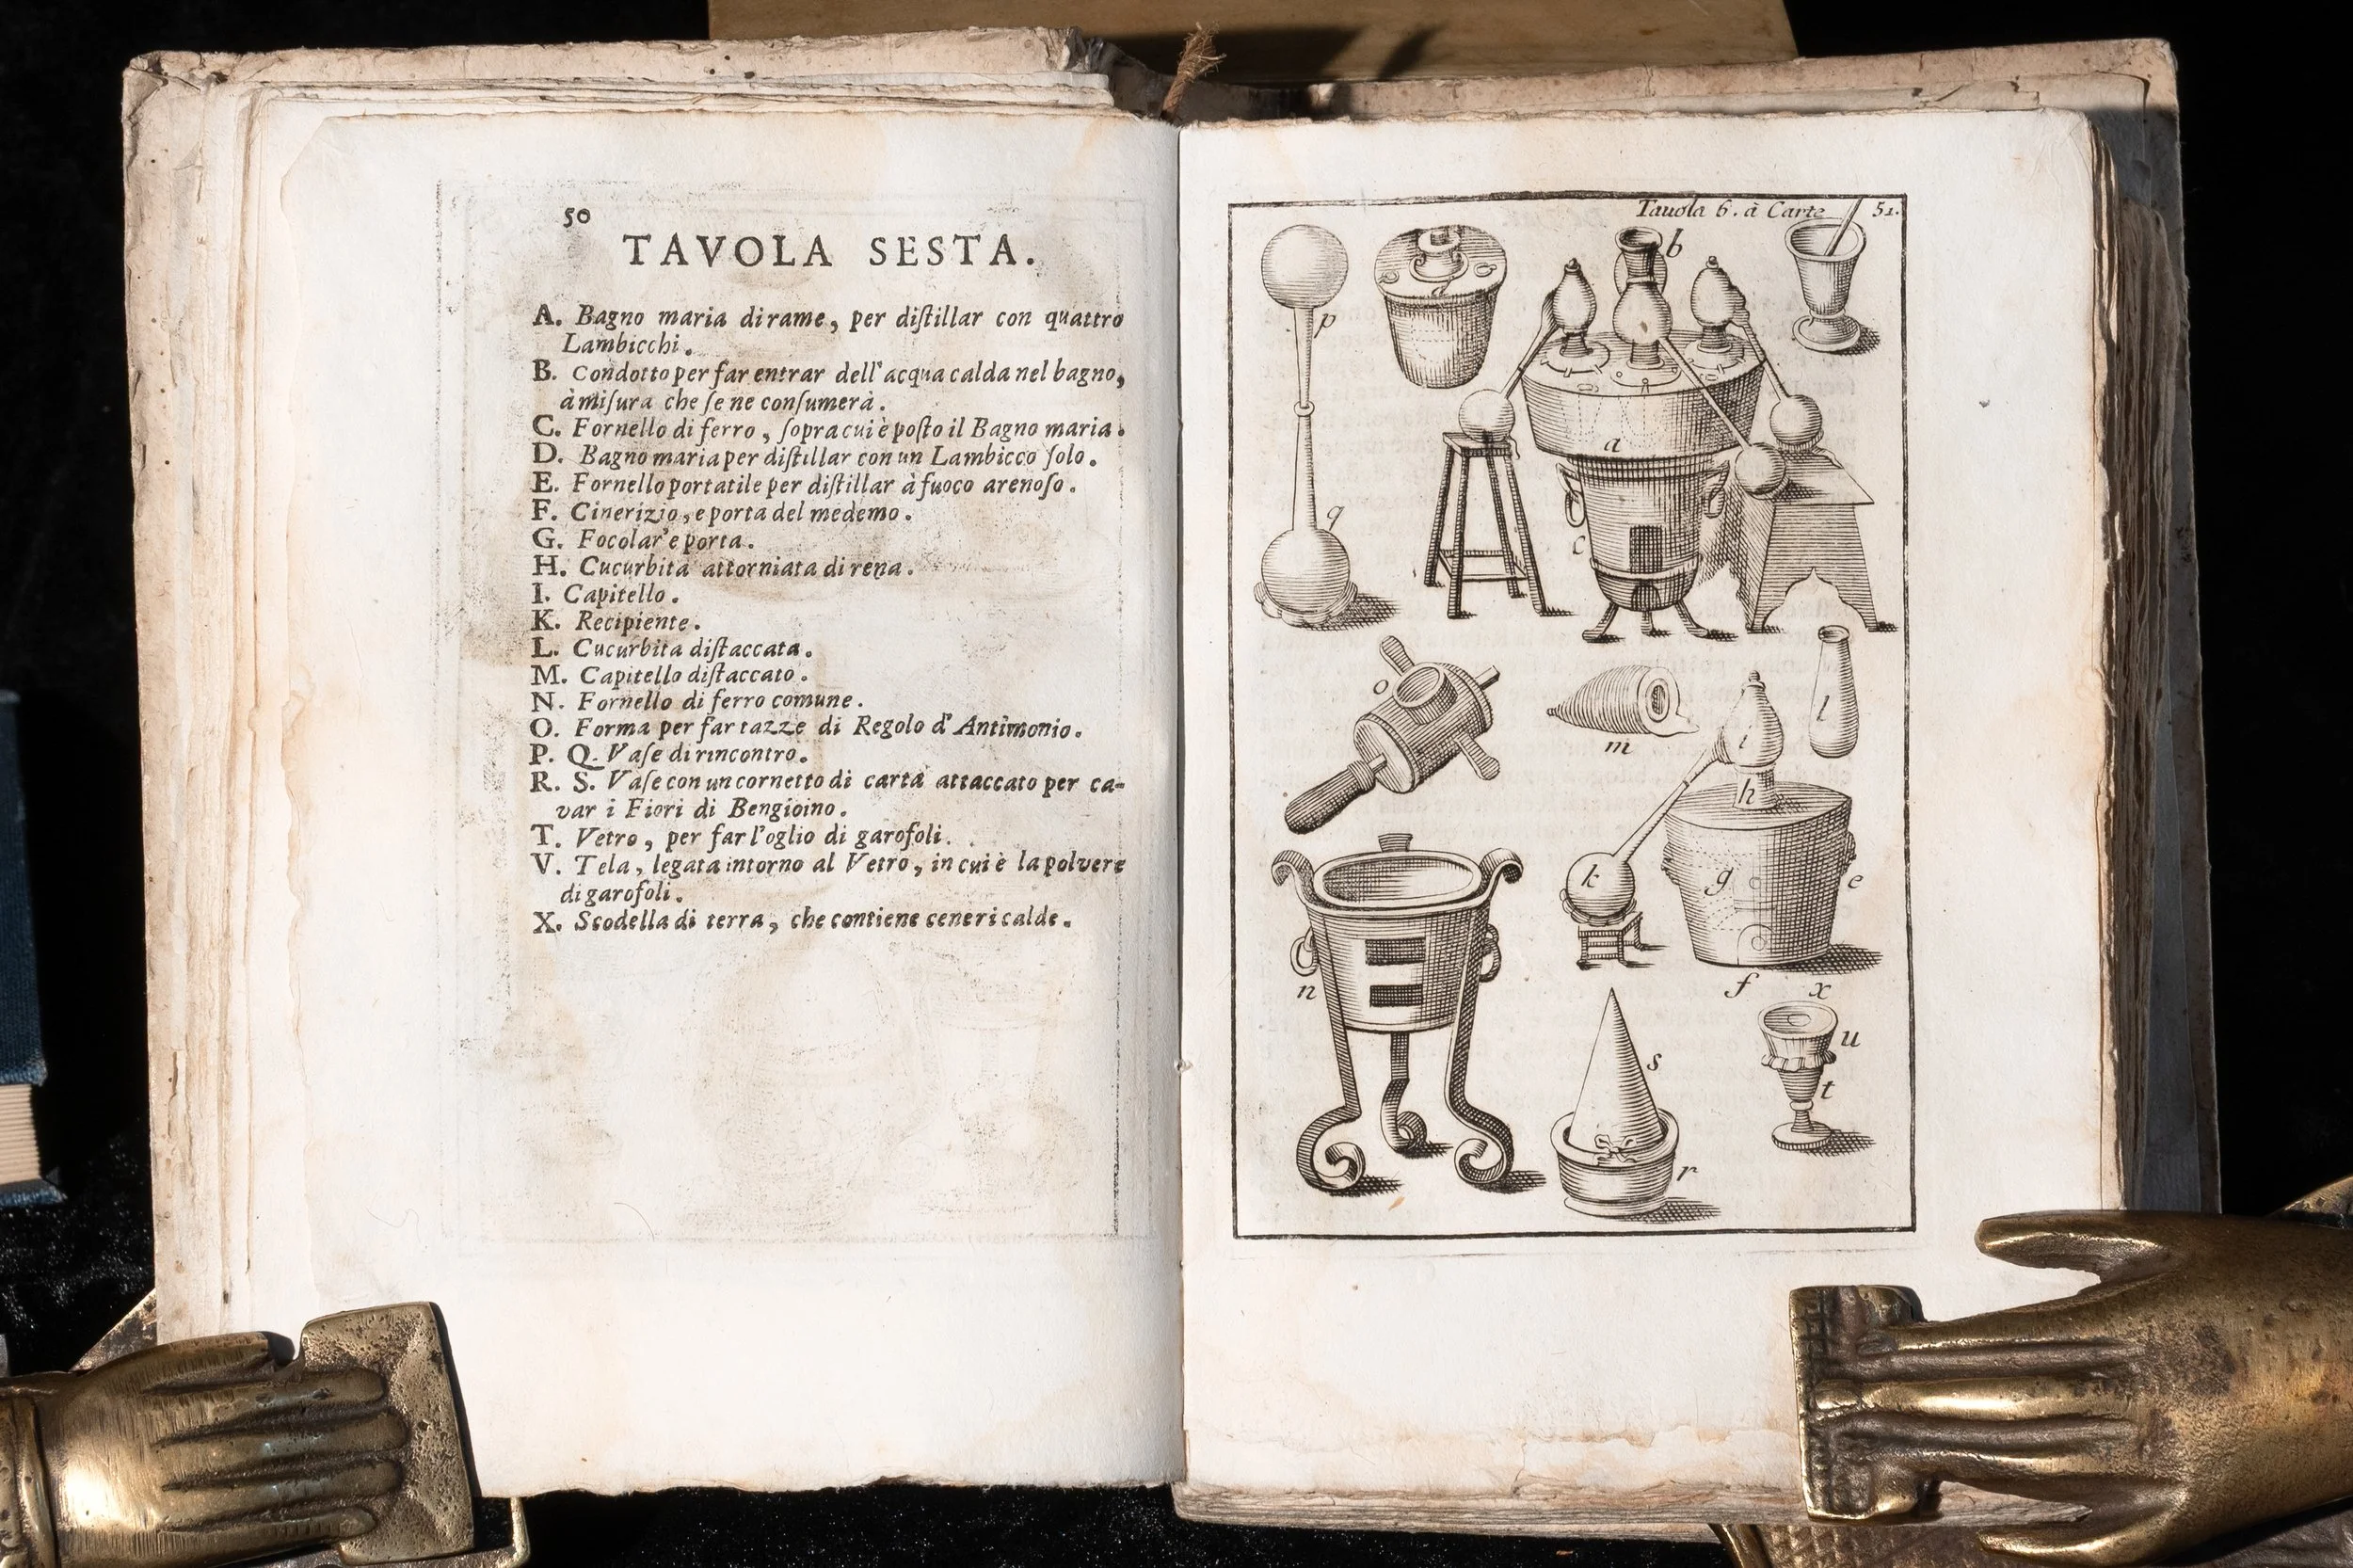 50
TAVOLA SESTA.
A. Bagno maria di rame, per diſtillar con quattro
Lambicchi.
B. Condotto per far entrar dell'acqua calda nel bagno,
à miſura che ſe ne conſumerà.
C. Fornello di ferro, ſopra cui è poſto il Bagno maria.
D. Bagno maria per diſtillar con un Lambicco ſolo.
E. Fornello portatile per diſtillar à fuoco arenoſo.
F. Cinerizio, e porta del medemo.
G. Focolar' e porta.
H. Cucurbita attorniata di rena.
I. Capitello.
K. Recipiente.
L. Cucurbita diſtaccata.
M. Capitello diſtaccato.
N. Fornello di ferro comune.
O. Forma per far tazze di Regolo d'Antimonio.
P. Q. Vaſe di rincontro.
R. S. Vaſe con un cornetto di carta attaccato per ca-
var i Fiori di Bengioino.
T. Vetro, per far l'oglio di garofoli.
V. Tela, legata intorno al Vetro, in cui è la polvere
di garofoli.
X. Scodella di terra, che contiene ceneri calde.
Tauola 6. à Carte 51.
b
p
d
a
q
c
o
m
l
i
h
k
g
e
n
f
x
u
s
t
r